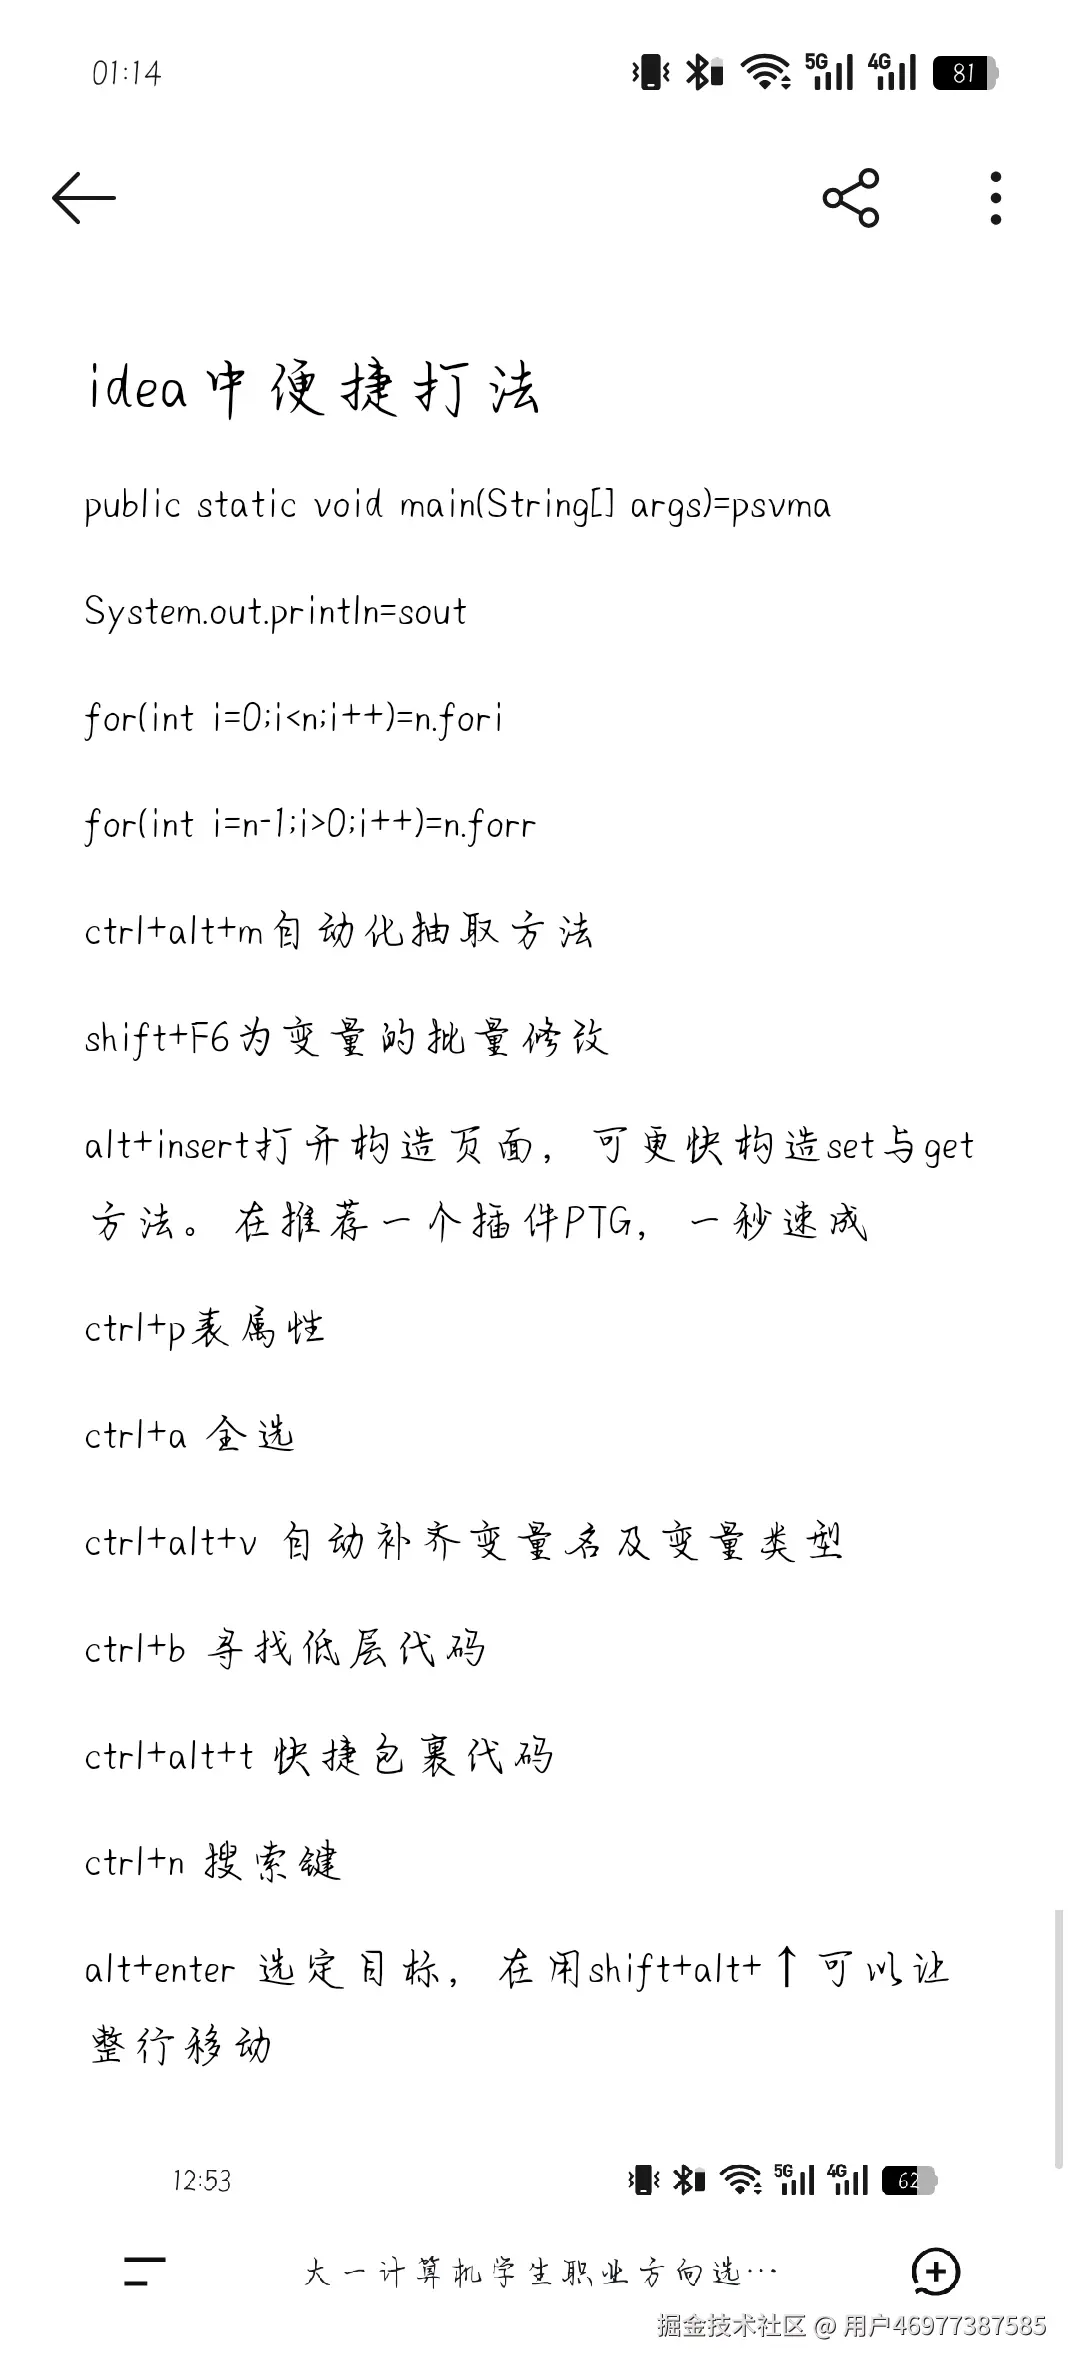 01:14
5G 4G 81
idea中便捷打法
public static void main(String[] args)=psvma
System.out.println=sout
for(int i=0;i<n;i++)=n.fori
for(int i=n-1;i>0;i++)=n.forr
ctrl+alt+m自动化抽取方法
shift+F6为变量的批量修改
alt+insert打开构造页面，可更快构造set与get
方法。在推荐一个插件PTG，一秒速成
ctrl+p表属性
ctrl+a 全选
ctrl+alt+v 自动补齐变量名及变量类型
ctrl+b 寻找低层代码
ctrl+alt+t 快捷包裹代码
ctrl+n 搜索键
alt+enter 选定目标，在用shift+alt+↑可以让
整行移动
12:53
5G 4G 62
大一计算机学生职业方向选…
掘金技术社区 @ 用户46977387585